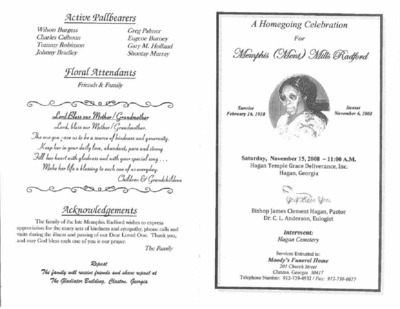 Active Pallbearers
Wilson Burgess
Charles Calhoun
Tommy Robinson
Johnny Bradley
Greg Palmer
Eugene Barney
Guy M. Holland
Shootay Murray
Floral Attendants
Friends & Family
Lord Bless our Mother/Grandmother
Lord, bless our Mother/Grandmother
The one you gave us to be a source of kindness and generosity.
Keep her in your daily love, abundant, pure and strong
Fill her heart with gladness and with your special song . . .
Make her life a blessing to each one of us everyday.
Children & Grandchildren
Acknowledgements
The family of the late Memphis Radford wishes to express
appreciation for the many acts of kindness and sympathy, phone calls and
visits during the illness and passing of our Dear Loved One. Thank you,
and may God bless each one of you is our prayer.
The Family
Repast
The family will receive friends and share repast at
The Gladiator Building, Claxton, Georgia
A Homegoing Celebration
For
Memphis (Ment) Mills Radford
Sunrise
February 24, 1918
Sunset
November 6, 2008
Saturday, November 15, 2008 - 11:00 A.M.
Hagan Temple Grace Deliverance, Inc.
Hagan, Georgia
Bishop James Clement Hagan, Pastor
Dr. C. L. Anderson, Eulogist
Interment:
Hagan Cemetery
Services Entrusted to:
Moody's Funeral Home
201 Church Street
Claxton, Georgia 30417
Telephone Number: 912-739-